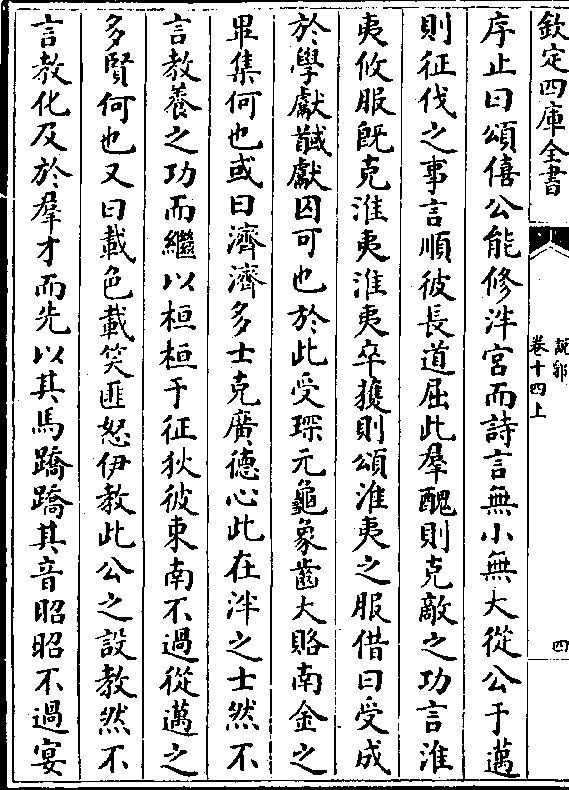 欽定四庫全書
說郛
卷十四上
四
序止曰頌僖公能修泮宮而詩言無小無大從公于邁
則征伐之事言順彼長道屈此羣醜則克敵之功言淮
夷攸服既克淮夷淮夷卒獲則頌淮夷之服借曰受成
於學獻馘獻囚可也於此受琛元龜象齒大賂南金之
畢集何也或曰濟濟多士克廣德心此在泮之士然不
言教養之功而繼以桓桓于征狄彼東南不過從邁之
多賢何也又曰載色載笑匪怒伊教此公之設教然不
言教化及於羣才而先以其馬蹻蹻其音昭昭不過宴